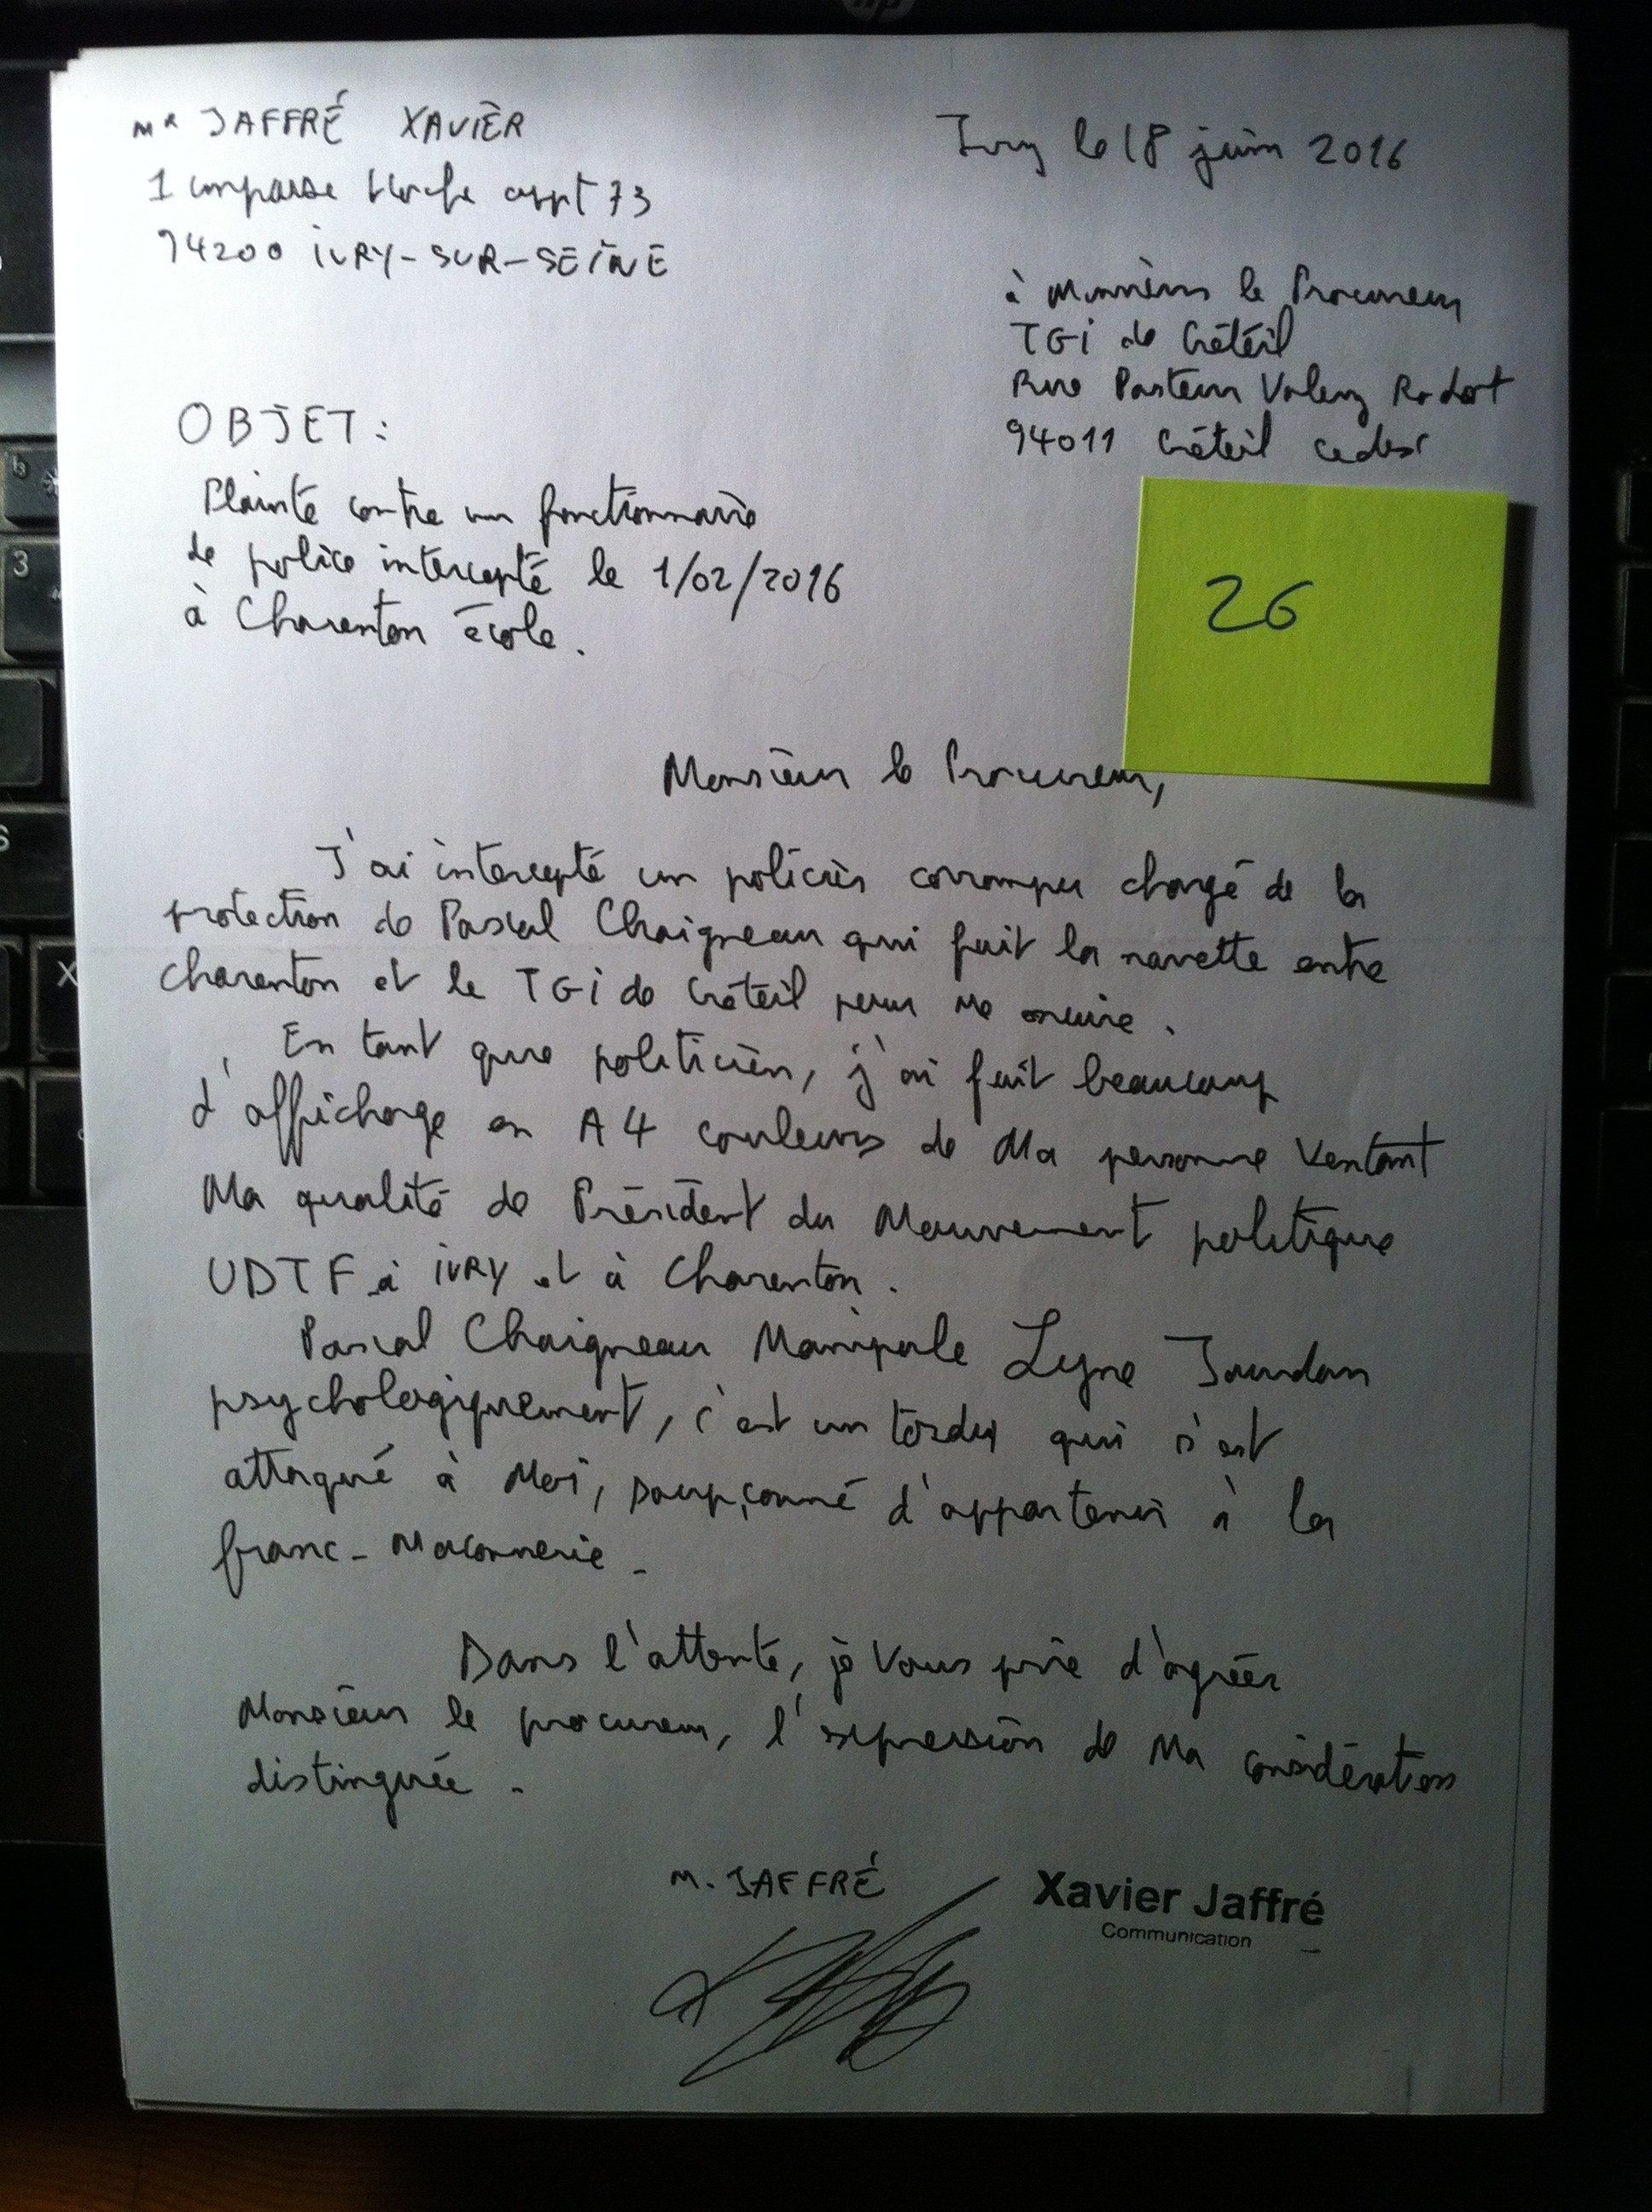 Mr JAFFRÉ XAVIER
Ivry le 18 juin 2016
1 impasse appt 73
94200 IVRY-SUR-SEINE
à Monsieur le Procureur
TGI de Créteil
Rue Pasteur Valery Radot
94011 Créteil cedex
OBJET :
Plainte contre un fonctionnaire
de police intercepté le 1/02/2016
à Charenton école.
26
Monsieur le Procureur,
J'ai intercepté un policier corrompu chargé de la
protection de Pascal Chaigneau qui fait la navette entre
Charenton et le TGI de Créteil pour me nuire.
En tant que politicien, j'ai fait beaucoup
d'affichage en A4 couleurs de Ma personne Ventant
Ma qualité de Président du Mouvement politique
UDTF à IVRY et à Charenton.
Pascal Chaigneau Manipule Lyne Jourdan
psychologiquement, c'est un tordu qui s'est
attaqué à Moi, soupçonné d'appartenir à la
franc-Maçonnerie.
Dans l'attente, je Vous prie d'agréer
Monsieur le procureur, l'expression de Ma considération
distinguée.
M. JAFFRÉ
Xavier Jaffré
Communication